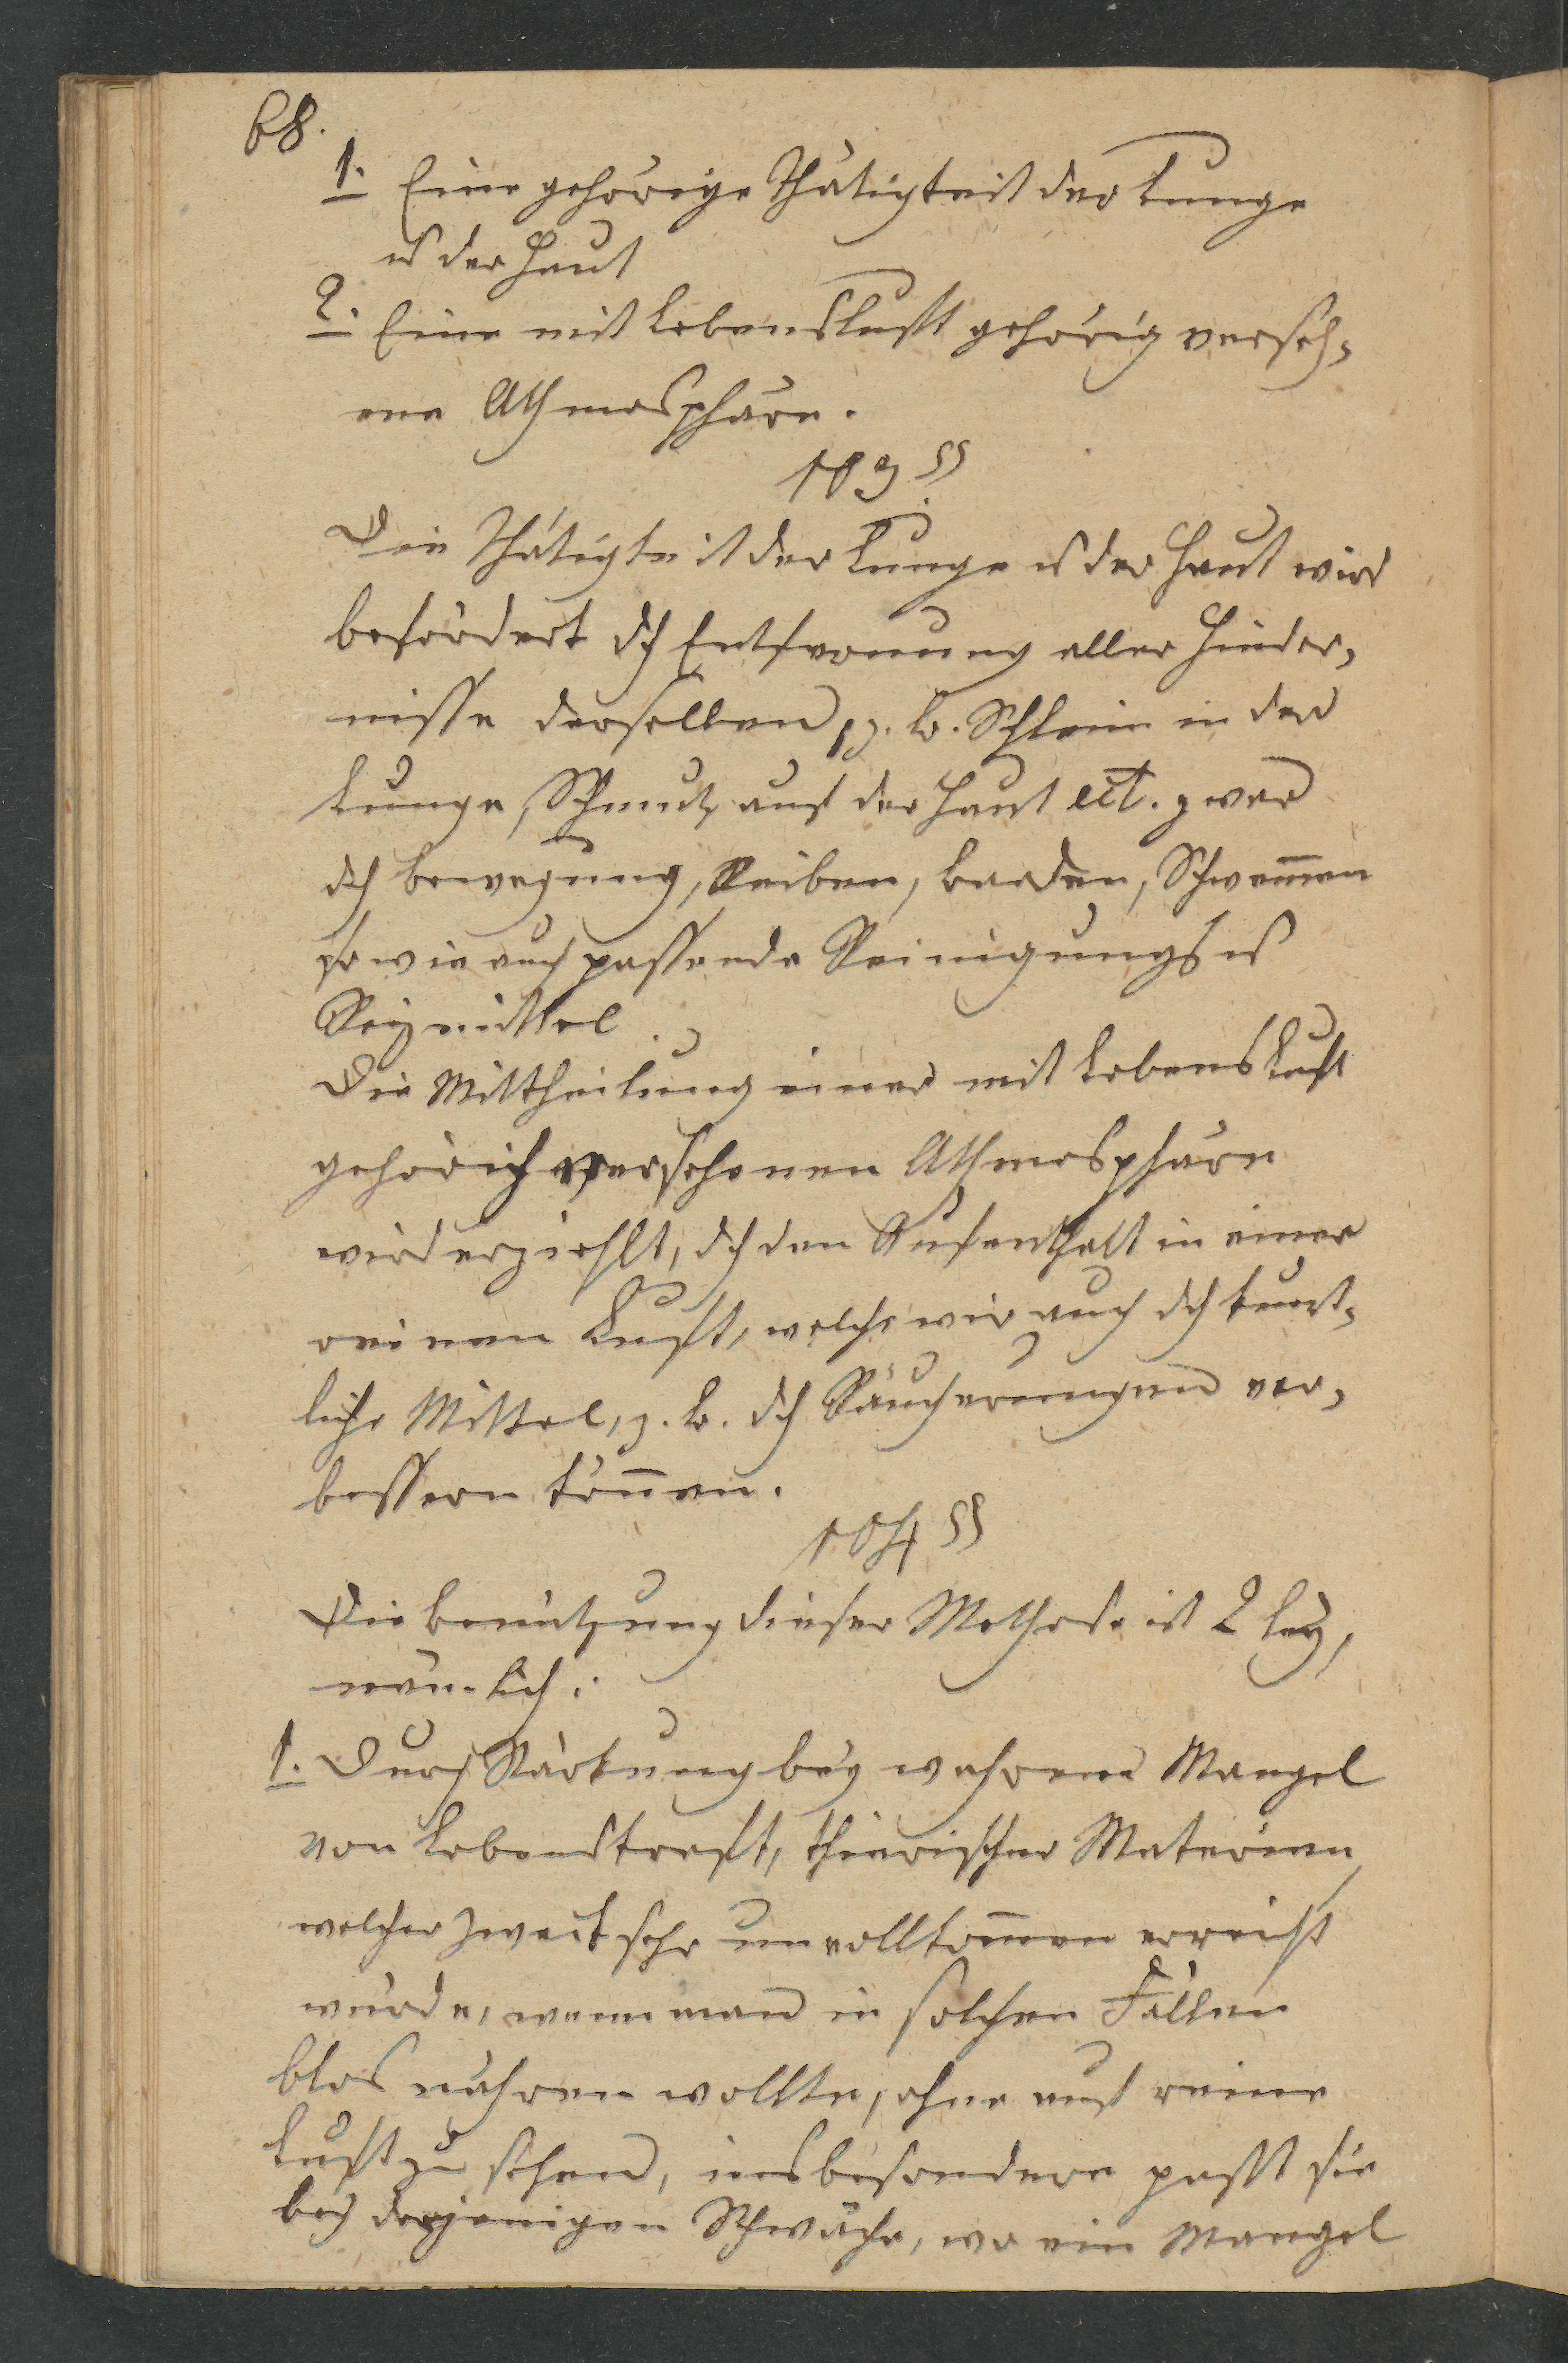 68.
1. Eine gehörige Thätigkeit der Lunge
u der Haut
2. Eine mit Lebensluft gehörig verseh=
ene Athmosphäre.
103 §§
Die Thätigkeit der Lunge u der Haut wird
befördert dh Entfernung aller Hinder=
nisse derselben, z. B. Schleim in der
Lunge, Schmutz auf der Haut ect. zwar
dh Bewegung, Reiben, Baaden, Schwemmen
so wie auch passende Reinigungs u
Reizmittel.
Die Mittheilung einer mit Lebensluft
gehörich versehenen Athmosphäre
wird erziehlt, dh den Aufenthalt in einer
reinen Luft, welche wir auch dh kunst=
liche Mittel, z. B. dh Räucherungen ver=
bessern können.
104 §§
Die Benützung dieser Methode ist 2 ley,
näm-lich:
1. Durch Stärkung bey wahrem Mangel
von Lebenskraft, thierischer Materien,
welcher Zweck sehr unvollkommen erreicht
würde, wenn man in solchen Fällen
blos nähren wollte, ohne auf reine
Luft zu sehen, insbesondere passt sie
bey derjenigen Schwäche, wo ein Mangel